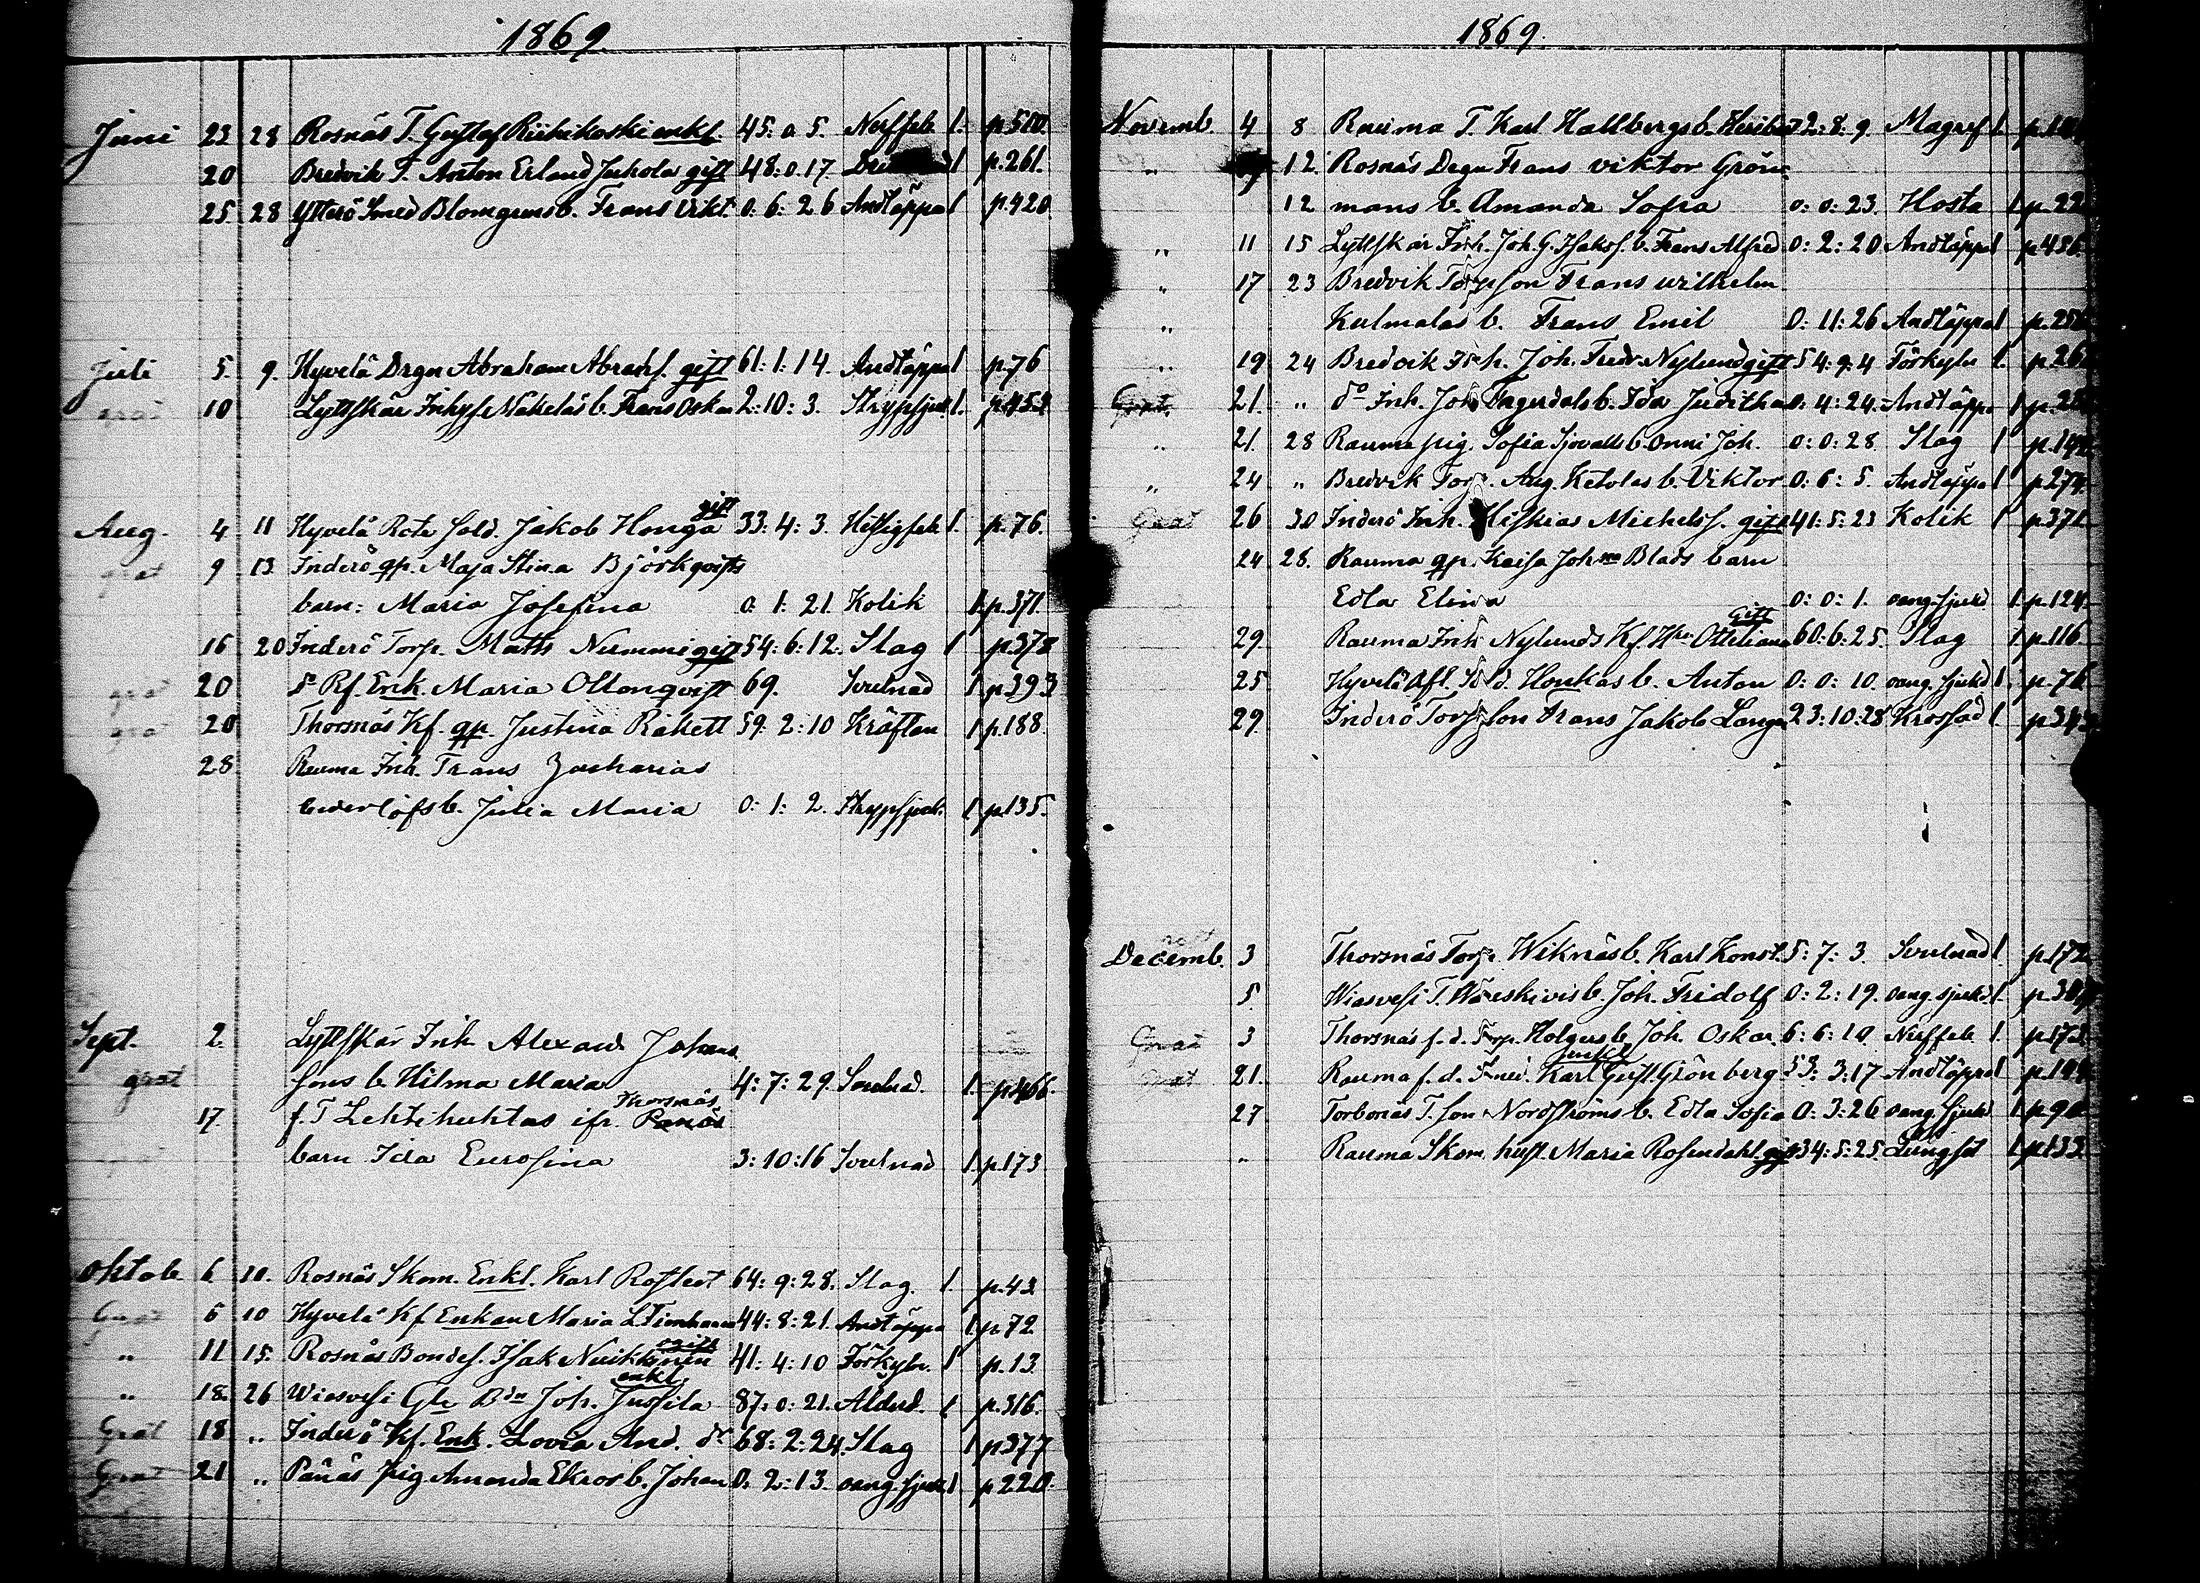 1869.
Juni 23 28 Rosnäs T. Gustaf Riihikoski enkl. 45: 0 5. Nerffeb 1. p.510.
20 Bredvik T. Anton Erland Juhola gift 48: 0 17. 1 p.261.
25 28 Ytterö Smed Blomgrens b. Frans Vikt. 0: 6: 26 Andtäppa 1 p.420
Juli 5. 9. Hyvelä Drgn Abraham Abrahs. gift 61: 1: 14. Andtäppa 1 p.76
grat 10 Lyttskär Inhys Mäkeläs b. Frans Oskar 2: 10: 3. Strypsjuk. 1. p.452
gift
Aug. 4 11 Hyvelä Rote Sold. Jakob Honga 33: 4: 3. Hetsigfeb 1. p.76.
grat 9 13 Inderö qp. Maja Stina Björkqvists
barn: Maria Josefina 0: 1: 21. Kolik 1. p.371.
16 20 Inderö Torp. Matts Nummi gift 54: 6: 12. Slag 1 p.378
grat 20 do Rf. Enk. Maria Ollonqvist 69. Svulnad 1 p.393
grat 20 Thorsnäs Kf. qp. Justina Rakett 59: 2: 10 Kräftan 1 p.188.
28 Rauma Inh. Frans Zacharias
Cederlöfs b. Julia Maria 0: 1: 2. Strypsjuk. 1 p.135.
Sept. 2 Lyttskär Inh Alexand. Johans
grat sons b Hilma Maria 4: 7: 29. Svulnad. 1. p.466.
Thorsnäs
17. f. T Lehtihuhtas ifr. Panäs
barn Ida Eurosina 3: 10: 16 Svulnad 1 p.173
Oktob 6 10. Rosnäs Skom. Enkl. Karl Rostedt 64: 9: 28. Slag. 1. p.43
Grat 6 10 Hyvelä Kf Enkan Maria L. 44: 8: 21. Andtäppa 1 p.72.
gift
" 11 15. Rosnäs Bondes. Isak Nuikkinen 41: 4: 10 Förkyln. 1 p.13.
enkl.
" 18. 26 Wiasvesi Gle Bdn Joh. Jussila 87: 0: 21. Alderd. 1 p.316.
Grat 18 " Inderö Kf. Enk. Lovia And. dr 68: 2: 24. Slag 1 p.377
Grat 21 " Panäs pig Amanda Ekros b. Johan 0: 2: 13. oang. sjukd. 1 p.220.
1869.
Novemb. 4 8 Rauma T. Karl Hallbergs b. 2: 8: 9. Magref 1. p.
" 12 Rosnäs Drgn Frans Viktor Grön=
12 mans b. Amanda Sofia 0: 0: 23. Hosta 1 p.22
" 11 15 Lyttskär Inh. Joh. G. Isaks. b. Frans Alfred 0: 2: 20. Andtäppa 1 p.456.
" 17 23 Bredvik Torpson Frans Wilhelm
" Kulmalas b. Frans Emil 0: 11: 26 Andtäppa 1 p.256
" 19 24 Bredvik Inh. Joh. Fredr. Nylund gift 54: 9: 4 Förkyln 1. p.26
Grat. 21. " do Inh. Joh Fagerdals b. Ida Juditha 0: 4: 24. Andtäpp. 1 p.
" 21. 28 Rauma pig. Sofia Sjövalls b Onni Joh. 0: 0: 28. Slag 1 p.
" 24 " Bredvik Torp. Aug. Ketolas b. Viktor 0: 6: 5. Andtäppa 1 p.274.
Grat 26 30 Inderö Inh. Hiskias Michelss. gift 41: 5: 23 Kolik 1 p.371
24 28. Rauma qp. Kaisa Johna Blads barn
Edla Elina 0: 0: 1. oang. sjukd 1 p.124.
Gift
29. Rauma Inh Nylunds Kf. Hu Otteliana 60: 6: 25. Slag 1 p.116.
25 Hyvelä Afl. Sold. Honkas b. Anton 0: 0: 10. oang. sjukd 1. p.76
29. Inderö Torpson Frans Jakob Långa 23: 10: 28 Krossad 1. p.343
Decemb. 3 Thorsnäs Torp. Wiknäs b. Karl Konst. 5: 7: 3. Svulnad 1. p.172
5 Wiasvesi T. b. Joh. Fridolf 0: 2: 19. oang. sjukd. 1. p.
Grat 3 Thorsnäs f. d. Torp. Holgers b. Joh. Oskar 6: 6: 10 Nerffeb 1. p.173
enkl
Grat 21. Rauma f. d. Smed. Karl Gust. Grönberg 53: 3: 17 Andtäppa 1 p.
27 Torbonäs T. son Nordströms b. Edla Sofia 0: 3: 26 oang. sjukd. 1 p.90
" Rauma Skom. hust. Maria Rosendahl gift 34: 5: 25. Lungsot 1 p.133.